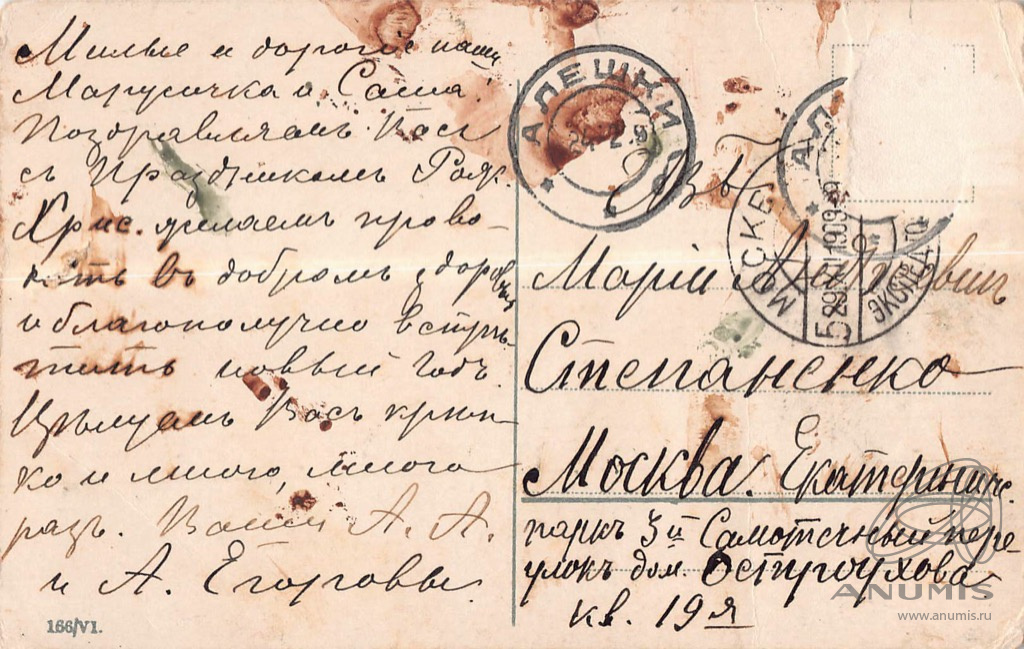 Милые и дорогіе наши
Марусичка и Саша!
Поздравляемъ Васъ
съ Праздникомъ Рож.
Хрис. желаемъ прово-
дить въ добромъ здоровьи
и благополучно встрѣ-
тить новый годъ.
Цѣлуемъ Васъ крѣп-
ко и много, много
разъ. Ваши А. А.
и А. Егоровы.
166/VI.
АЛЕШКИ
Въ
АЛ
МОСКВА
1909
ЭКСПЕД.
Маріи
Степаненко
Москва. Екатерининс.
паркъ 3й Самотечный пере-
улокъ дом. Остроухова
кв. 19я
ANUMIS
www.anumis.ru